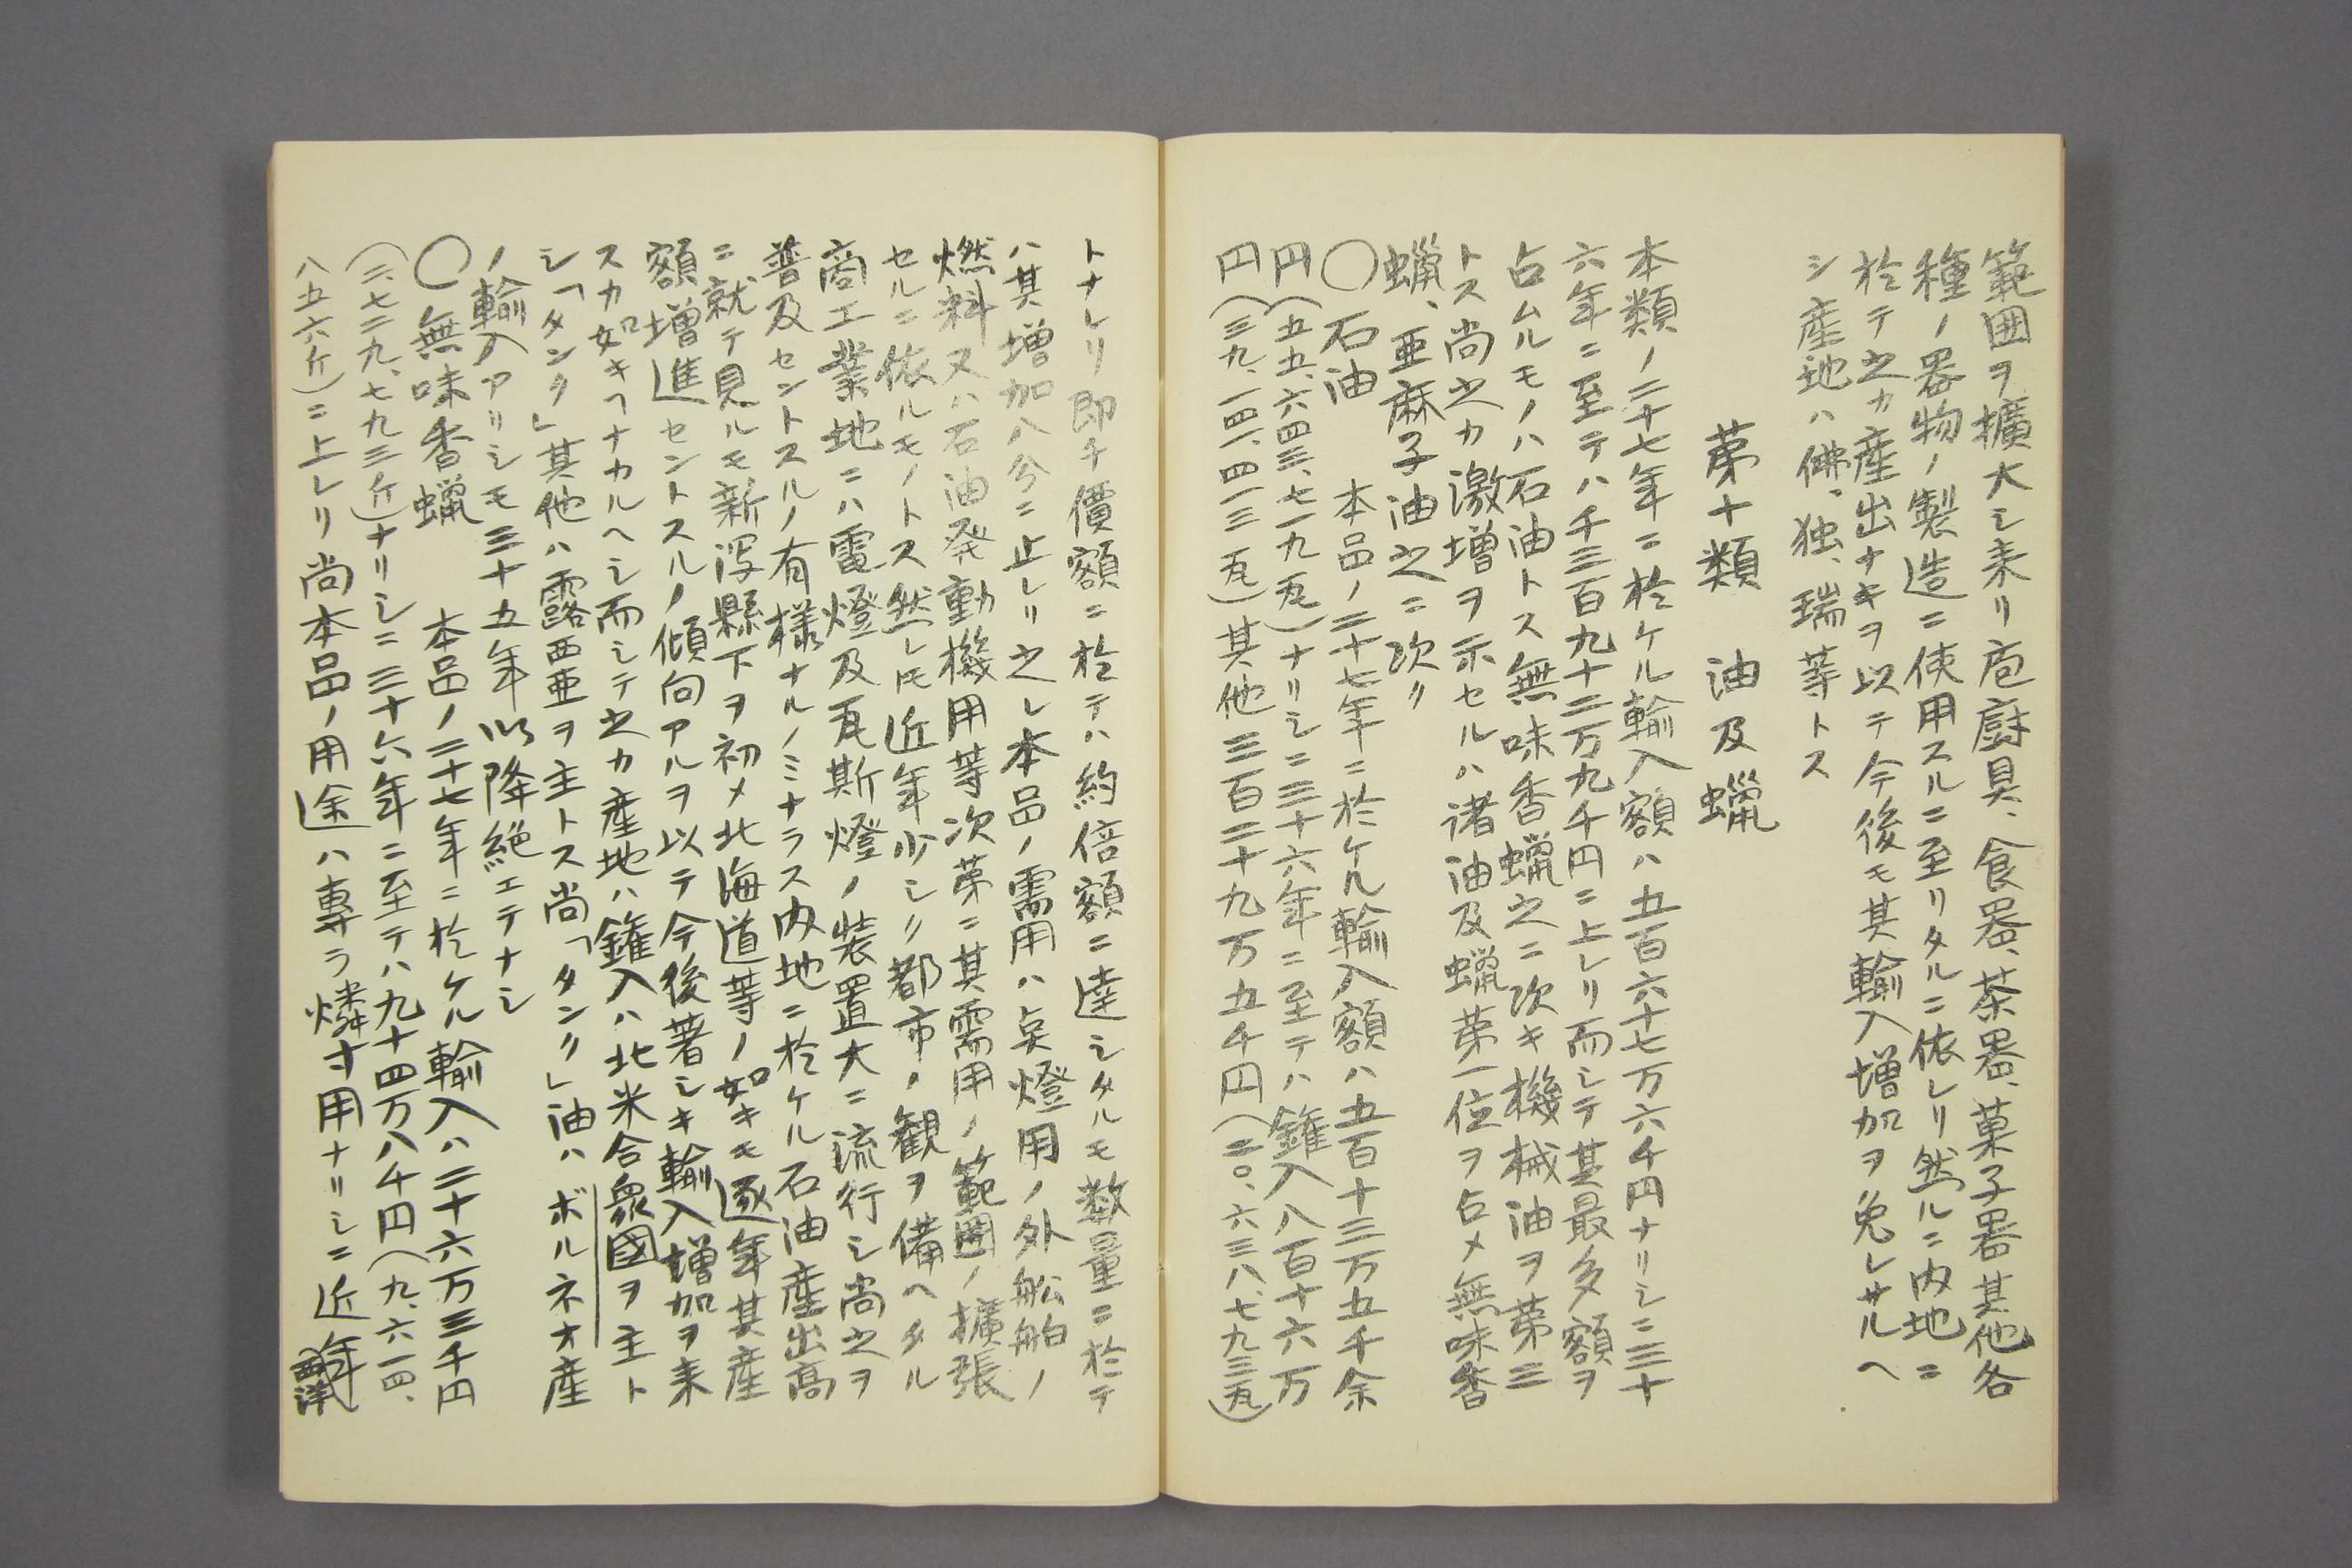 範囲ヲ擴大シ来リ庖厨具、食器、茶器、菓子器其他各
種ノ器物ノ製造ニ使用スルニ至リタルニ依レリ然ルニ内地ニ
於テ之カ産出ナキヲ以テ今後モ其輸入増加ヲ免レサルヘ
シ産地ハ佛、独、瑞等トス
苐十類 油及蠟
本類ノ二十七年ニ於ケル輸入額ハ五百六十七万六千円ナリシニ三十
六年ニ至テハ千三百九十二万九千円ニ上レリ而シテ其最多額ヲ
占ムルモノハ石油トス無味香蠟之ニ次キ機械油ヲ苐三
トス尚之カ激増ヲ示セルハ諸油及蠟苐一位ヲ占メ無味香
蠟、亜麻子油之ニ次リ
〇石油 本品ノ二十七年ニ於ケル輸入額ハ五百十三万五千余
円(五五、六四三、七一九瓦)ナリシニ三十六年ニ至テハ鑵入八百十六万
円(三九、一四一、四一三瓦)其他三百二十九万五千円(二〇、六三八、七九三瓦)
トナレリ即チ價額ニ於テハ約倍額ニ達シタルモ数量ニ於テ
ハ其増加八分ニ止レリ之レ本品ノ需用ハ点燈用ノ外舩舶ノ
燃料又ハ石油発動機用等次苐ニ其需用ノ範囲ノ擴張
セルニ依ルモノトス然レ𪜈近年少シク都市ノ観ヲ備ヘタル
商工業地ニハ電燈及瓦斯燈ノ装置大ニ流行シ尚之ヲ
普及セントスルノ有様ナルノミナラス内地ニ於ケル石油産出高
ニ就テ見ルモ新潟縣下ヲ初メ北海道等ノ如キモ逐年其産
額増進セントスルノ傾向アルヲ以テ今後著シキ輸入増加ヲ来
スカ如キヿナカルヘシ而シテ之カ産地ハ鑵入ハ北米合衆國ヲ主ト
シ「タンク」其他ハ露西亜ヲ主トス尚「タンク」油ハボルネオ産
ノ輸入アリシモ三十五年以降絶エテナシ
〇無味香蠟 本品ノ二十七年ニ於ケル輸入ハ二十六万三千円
(三、七二九、七九三斤)ナリシニ三十六年ニ至テハ九十四万八千円(九、六一四、
八五六斤)ニ上レリ尚本品ノ用途ハ專ラ燐寸用ナリシニ近年西洋